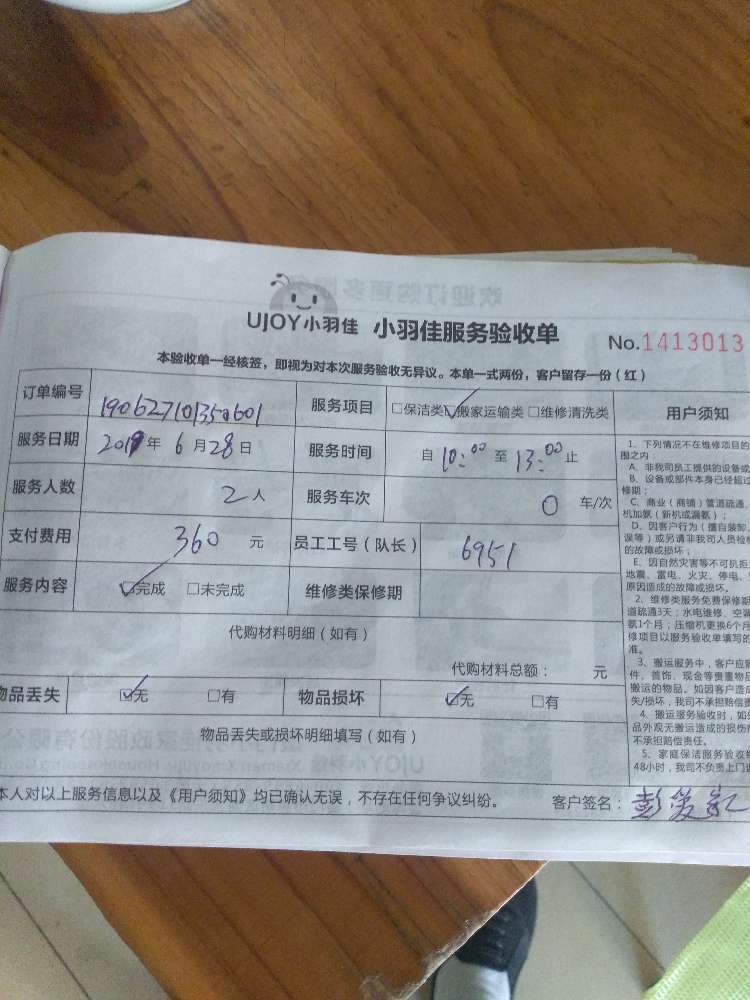 UJOY小羽佳 小羽佳服务验收单 No.1413013
本验收单一经核签，即视为对本次服务验收无异议。本单一式两份，客户留存一份（红）
订单编号 190627101350601 服务项目 □保洁类☑搬家运输类□维修清洗类 用户须知
服务日期 2019年6月28日 服务时间 自10:00至13:00止
服务人数 2人 服务车次 0 车/次
支付费用 360 元 员工工号（队长） 6951
服务内容 ☑完成 □未完成 维修类保修期
代购材料明细（如有）
代购材料总额： 元
物品丢失 ☑无 □有 物品损坏 ☑无 □有
物品丢失或损坏明细填写（如有）
本人对以上服务信息以及《用户须知》均已确认无误，不存在任何争议纠纷。 客户签名：彭
1、下列情况不在维修项目的
围之内：
A、非我司员工提供的设备或
B、设备或部件本身已经超过
修期；
C、商业（商铺）管道疏通
机加氨（新机或漏氨）；
D、因客户行为（擅自装卸
误等）或另请非我司人员检修
的故障或损坏；
E、因自然灾害等不可抗拒
地震、雷电、火灾、停电、
原因造成的故障或损坏。
2、维修类服务免费保修期
道疏通3天；水电维修、空调
氨1个月；压缩机更换6个月
修项目以服务验收单填写的
准。
3、搬运服务中，客户应
件、首饰、现金等贵重物品
搬运的物品。如因客户造成
失/损坏，我司不承担赔偿责
4、搬运服务验收时，如
品外观无搬运造成的损伤
不承担赔偿责任。
5、家庭保洁服务验收
48小时，我司不负责上门